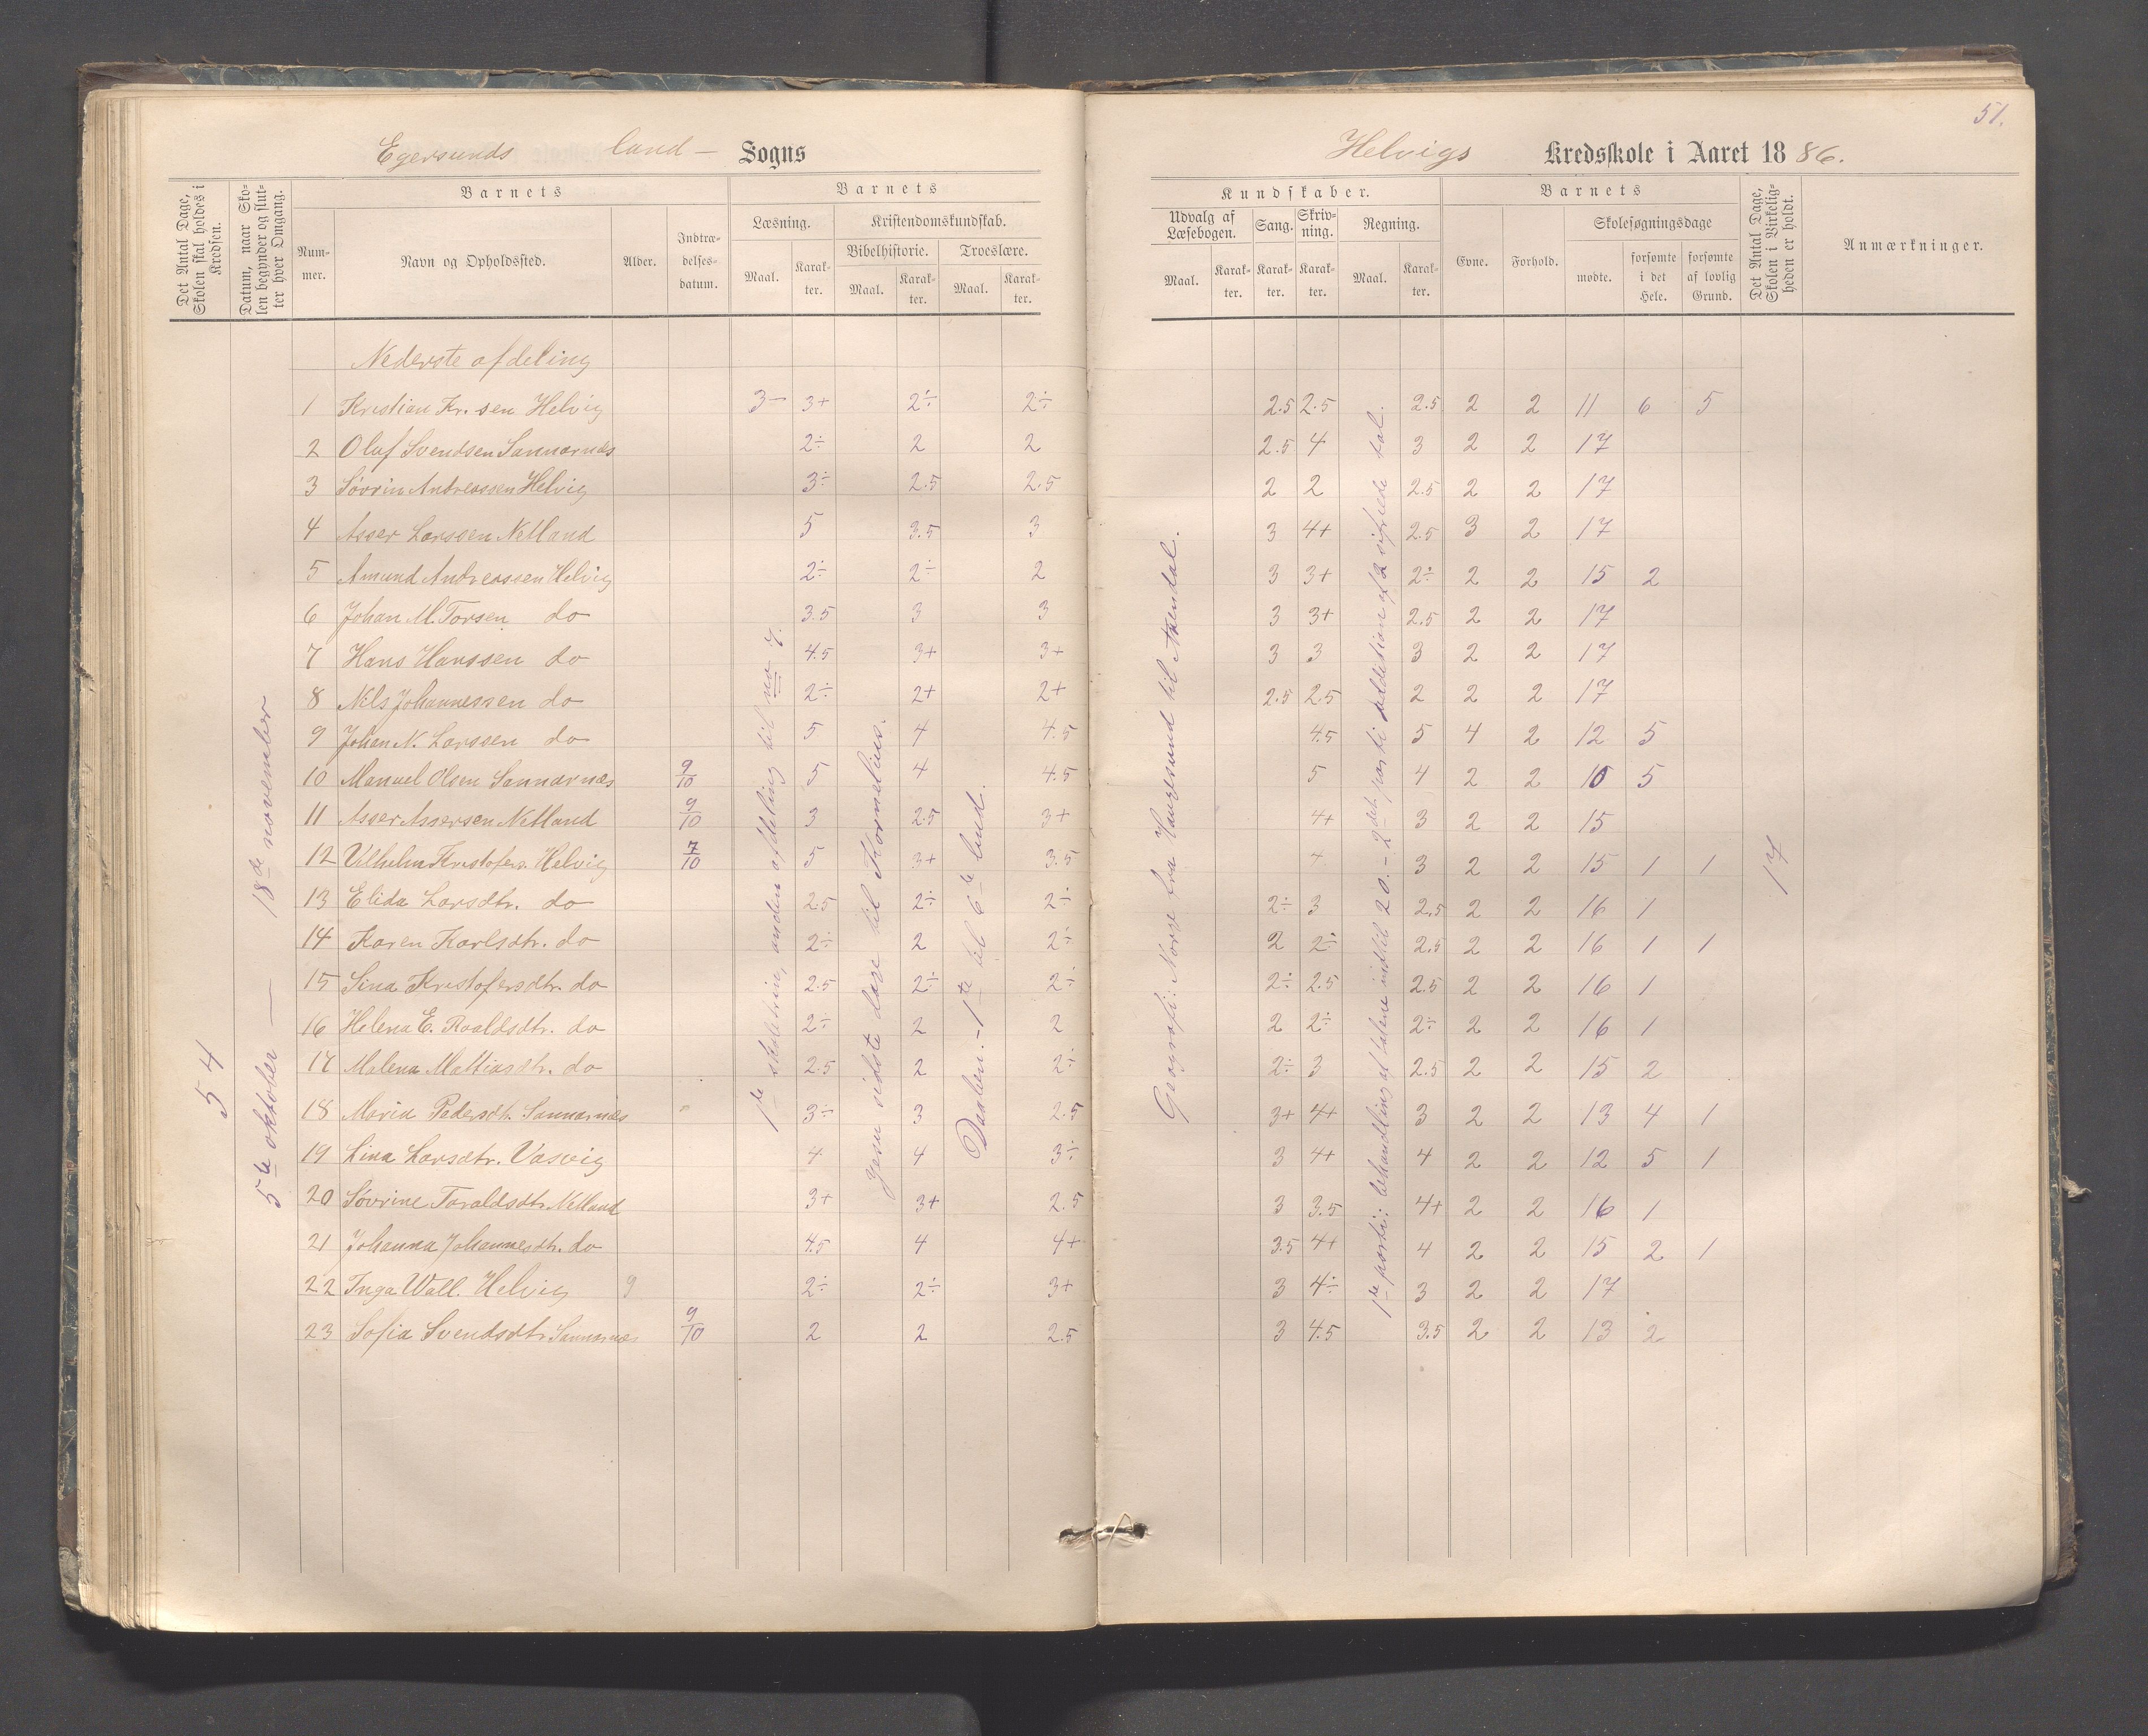 51.
Egersunds land – Sogns
Helvigs Kredsskole i Aaret 1886.
Det Antal Dage, Skolen skal holdes i Kredsen.
Datum, naar Skolen begynder og slutter hver Omgang.
Barnets
Nummer.
Navn og Opholdssted.
Alder.
Indtrædelsesdatum.
Barnets
Læsning.
Maal.
Karakter.
Kristendomskundskab.
Bibelhistorie.
Maal.
Karakter.
Troeslære.
Maal.
Karakter.
Kundskaber.
Udvalg af Læsebogen.
Maal.
Karakter.
Sang.
Karakter.
Skrivning.
Karakter.
Regning.
Maal.
Karakter.
Barnets
Evne.
Forhold.
Skolesøgningsdage
mødte.
forsømte i det Hele.
forsømte af lovlig Grund.
Det Antal Dage, Skolen i Virkeligheden er holdt.
Anmærkninger.
Nederste afdeling
1 Kristian Kr. sen Helvig 3– 3+ 2÷ 2÷ 2.5 2.5 2.5 2 2 11 6 5
2 Oluf Svendsen Sannarnæs 2÷ 2 2 2.5 4 3 2 2 17
3 Sövrin Andreassen Helvig 3÷ 2.5 2.5 2 2 2.5 2 2 17
4 Asser Larssen Netland 5 3.5 3 3 4+ 2.5 3 2 17
5 Amund Andreassen Helvig 2÷ 2÷ 2 3 3+ 2÷ 2 2 15 2
6 Johan M. Torsen do 3.5 3 3 3 3+ 2.5 2 2 17
7 Hans Hanssen do 4.5 3+ 3+ 3 3 3 2 2 17
8 Nils Johannessen do 2÷ 2+ 2+ 2.5 2.5 2 2 2 17
9 Johan N. Larssen do 5 4 4.5 4.5 5 4 2 12 5
10 Manuel Olsen Sannarnæs 9/10 5 4 4.5 5 4 2 2 10 5
11 Asser Assersen Netland 9/10 3 2.5 3+ 4+ 3 2 2 15
12 Vilhelm Kristofers. Helvig 7/10 5 3+ 3.5 4 3 2 2 15 1 1
13 Elida Larsdtr. do 2.5 2÷ 2÷ 2÷ 3 2.5 2 2 16 1
14 Karen Karlsdtr. do 2÷ 2 2÷ 2 2÷ 2.5 2 2 16 1 1
15 Sina Kristofersdtr. do 2.5 2÷ 2÷ 2÷ 2.5 2.5 2 2 16 1
16 Helena E. Roaldsdtr. do 2÷ 2 2 2 2÷ 2÷ 2 2 16 1
17 Malena Mattiasdtr. do 2.5 2 2÷ 2÷ 3 2.5 2 2 15 2
18 Maria Pedersdt. Sannarnæs 3÷ 3 2.5 3+ 4+ 3 2 2 13 4 1
19 Lina Larsdtr. Vasvig 4 4 3÷ 3 4+ 4 2 2 12 5 1
20 Sövrine Taraldsdtr. Netland 3+ 3+ 2.5 3 3.5 4+ 2 2 16 1
21 Johanna Johannesdtr. do 4.5 4 4+ 3.5 4+ 4 2 2 15 2 1
22 Inga Wall. Helvig 9 2÷ 2÷ 3+ 3 4÷ 3 2 2 17
23 Sofia Svendsdtr. Sannarnæs 9/10 2 2 2.5 3 4.5 3.5 2 2 13 2
54
5te oktober — 18de november
1de skoletrin, anden afdeling til no 7.
Igjen sidste dage til Kornelius.
Daaben. – 1te til 6te bud.
Geografi: Norge fra Haugesund til Arendal.
1de parti: behandling af talene indtil 20. – 2det parti addition af 2 sifrede tal.
17